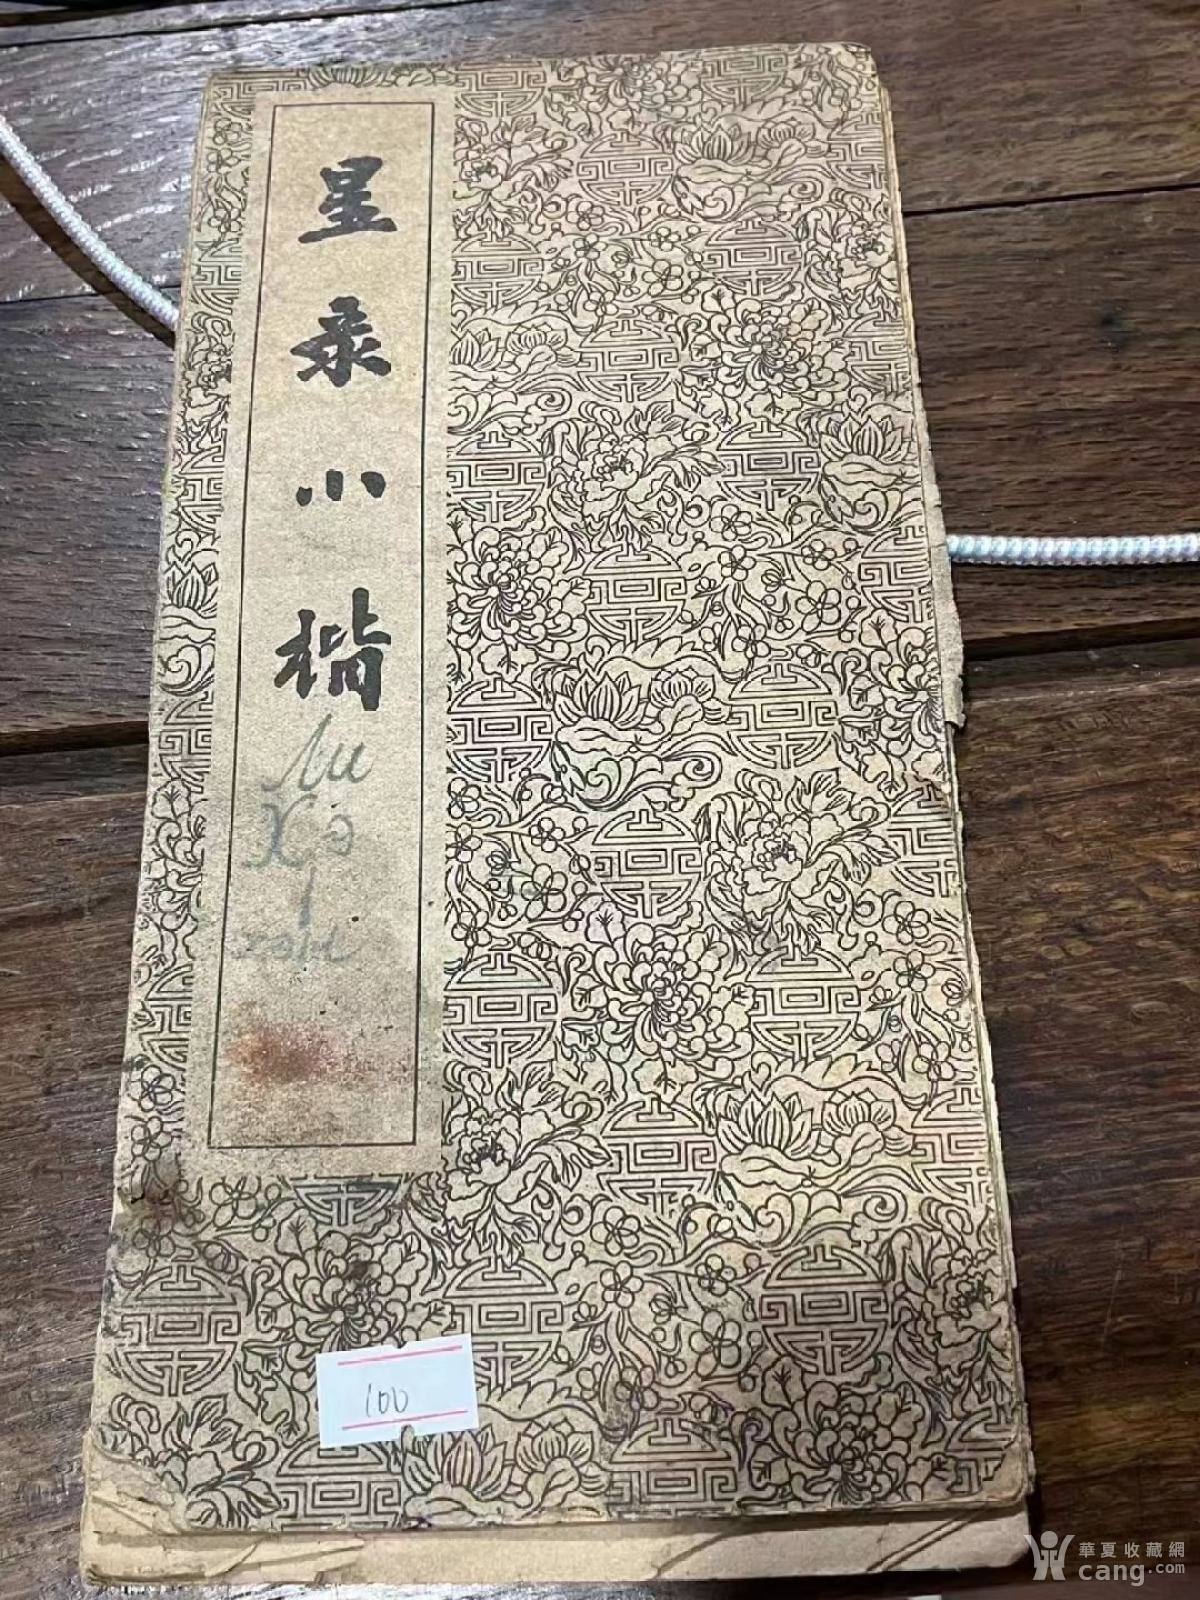 星录小楷
Liu
Xə
100
華夏收藏網
cang.com